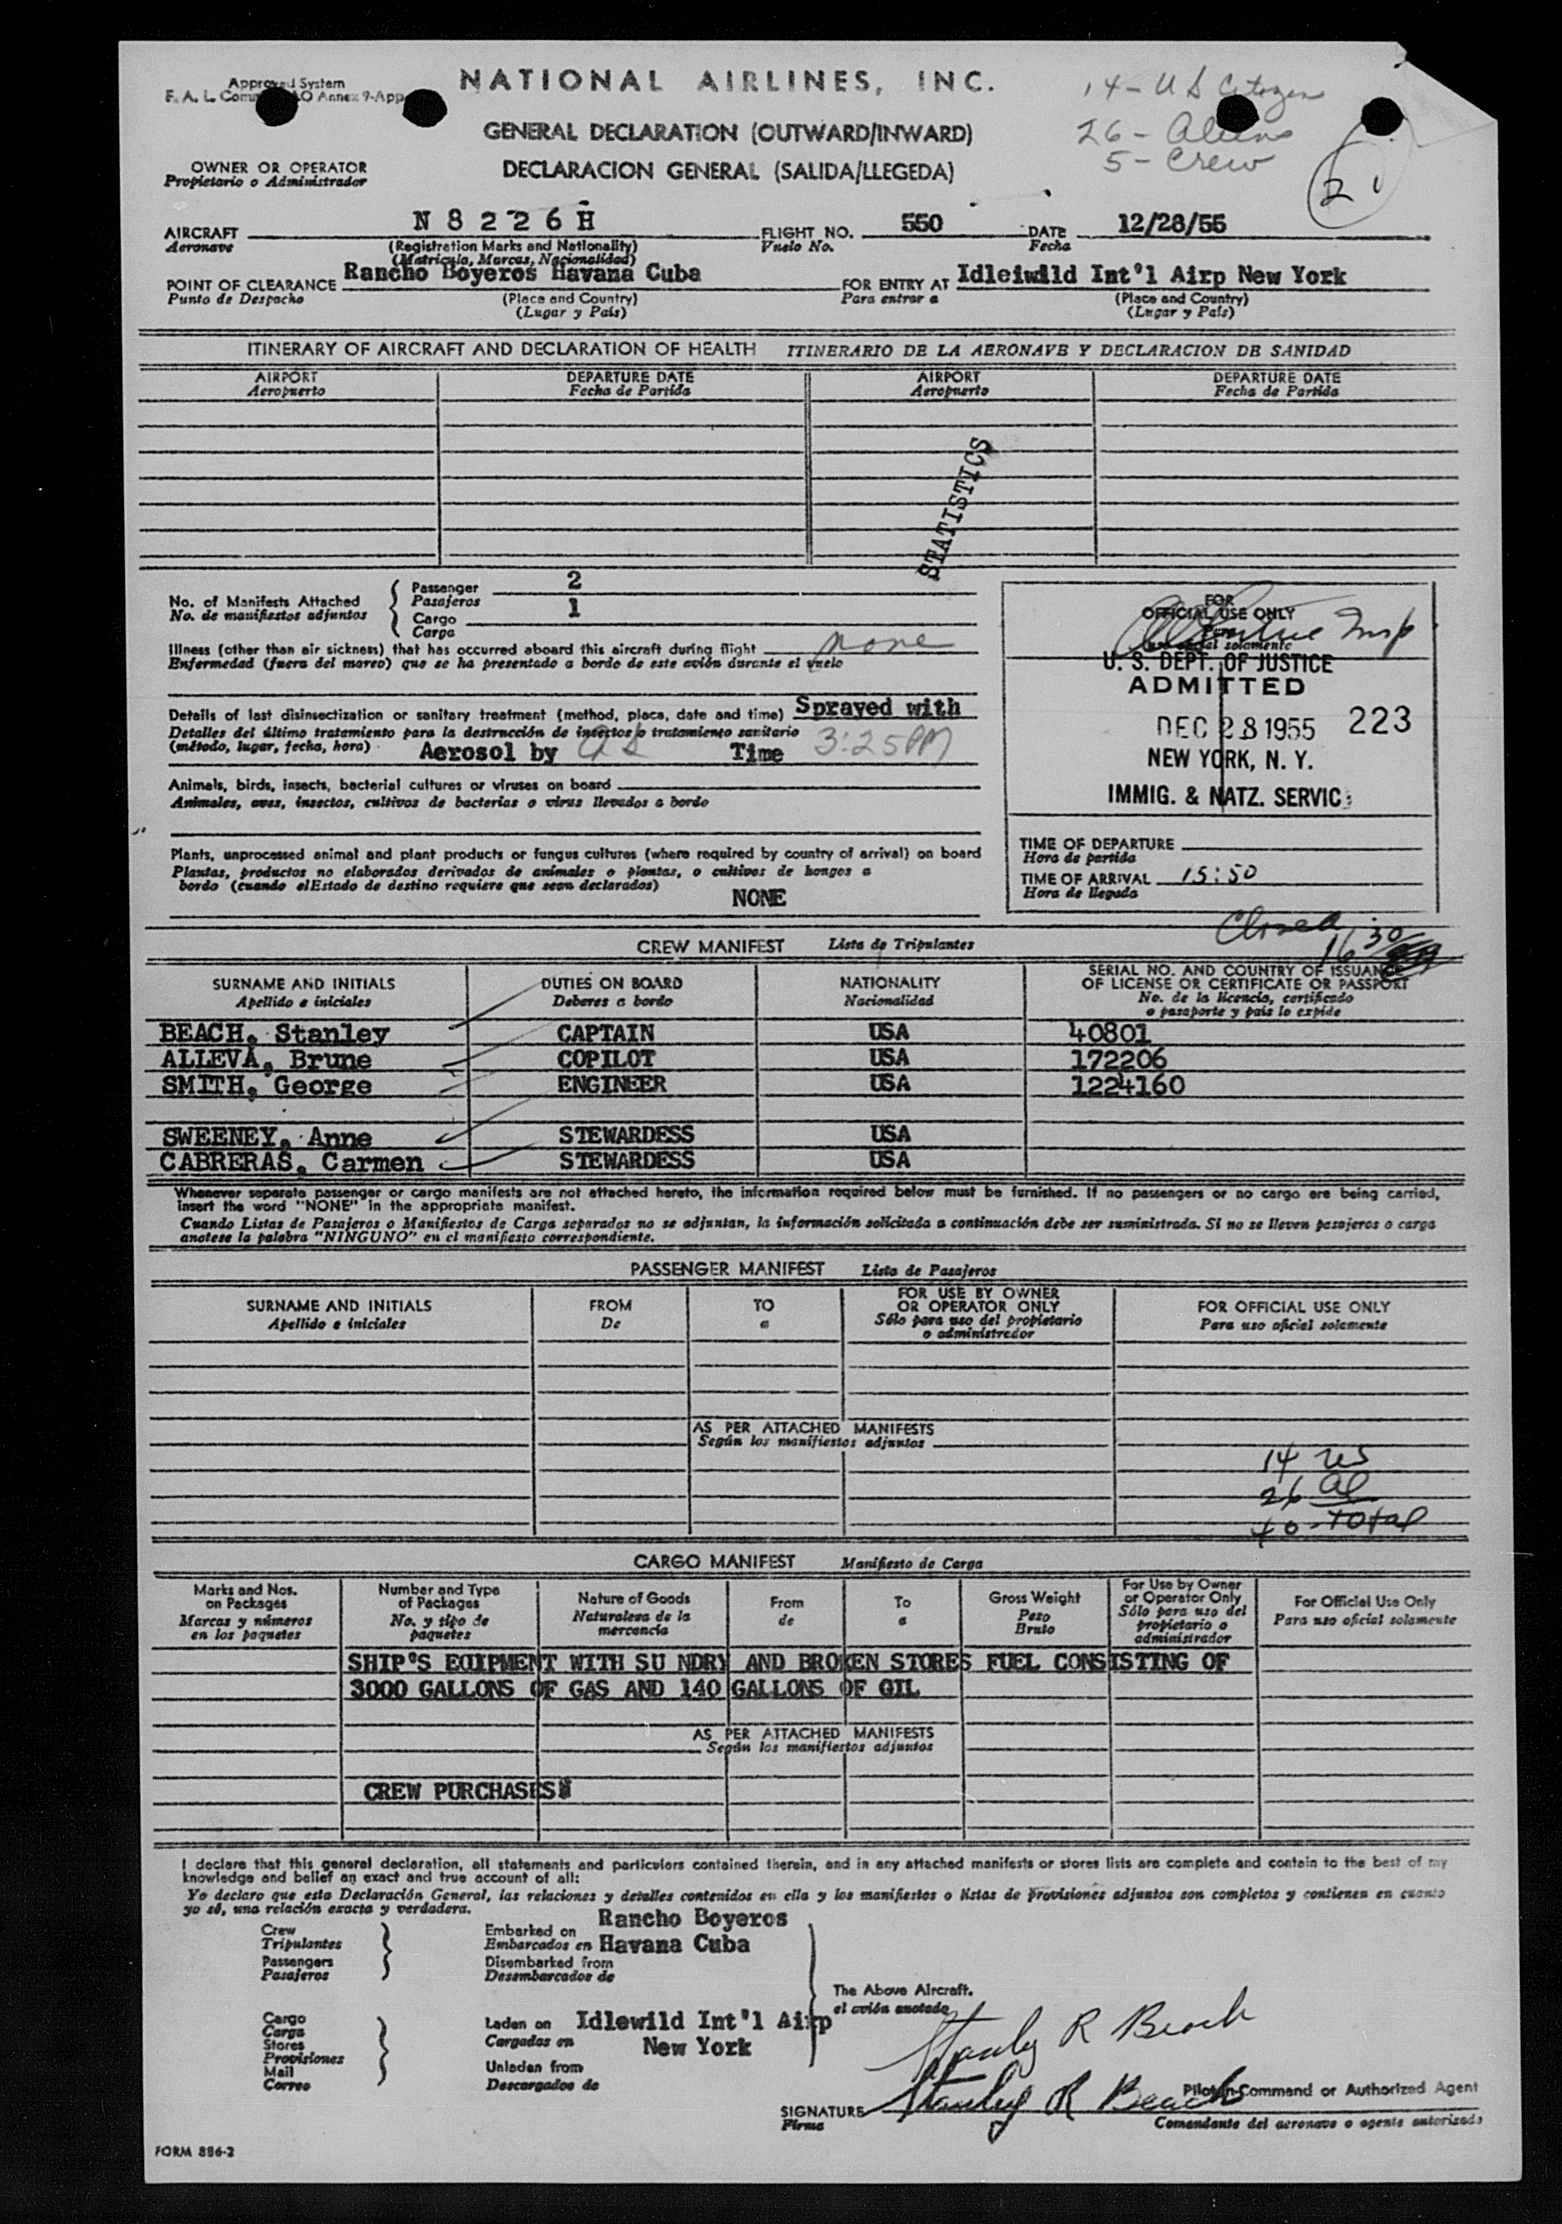 Approved System
F. A. L. Com O Annex 9-App
NATIONAL AIRLINES, INC.
14 - US Citizen
26 - Aliens
5 - Crew
2
GENERAL DECLARATION (OUTWARD/INWARD)
DECLARACION GENERAL (SALIDA/LLEGEDA)
OWNER OR OPERATOR
Propietario o Administrador
AIRCRAFT N 8 2 2 6 H FLIGHT NO. 550 DATE 12/28/55
Aeronave (Registration Marks and Nationality) Vuelo No. Fecha
(Matricula, Marcas, Nacionalidad)
POINT OF CLEARANCE Rancho Boyeros Havana Cuba FOR ENTRY AT Idleiwild Int'l Airp New York
Punto de Despacho (Place and Country) Para entrar a (Place and Country)
(Lugar y País) (Lugar y País)
ITINERARY OF AIRCRAFT AND DECLARATION OF HEALTH ITINERARIO DE LA AERONAVE Y DECLARACION DE SANIDAD
AIRPORT DEPARTURE DATE AIRPORT DEPARTURE DATE
Aeropuerto Fecha de Partida Aeropuerto Fecha de Partida
STATISTICS
No. of Manifests Attached Passenger 2
No. de manifiestos adjuntos Pasajeros
Cargo 1
Carga
Illness (other than air sickness) that has occurred aboard this aircraft during flight none
Enfermedad (fuera del mareo) que se ha presentado a bordo de este avión durante el vuelo
Details of last disinsectization or sanitary treatment (method, place, date and time) Sprayed with
Detalles del último tratamiento para la destrucción de insectos o tratamiento sanitario
(método, lugar, fecha, hora) Aerosol by Time 3:25PM
Animals, birds, insects, bacterial cultures or viruses on board
Animales, aves, insectos, cultivos de bacterias o virus llevados a bordo
Plants, unprocessed animal and plant products or fungus cultures (where required by country of arrival) on board
Plantas, productos no elaborados derivados de animales o plantas, o cultivos de hongos a
bordo (cuando elEstado de destino requiere que sean declarados)
NONE
FOR
OFFICIAL USE ONLY
Insp
solamente
U. S. DEPT. OF JUSTICE
ADMITTED
DEC 28 1955 223
NEW YORK, N. Y.
IMMIG. & NATZ. SERVIC
TIME OF DEPARTURE
Hora de partida
TIME OF ARRIVAL 15:50
Hora de llegada
Closed
16 30
CREW MANIFEST Lista de Tripulantes
SURNAME AND INITIALS DUTIES ON BOARD NATIONALITY SERIAL NO. AND COUNTRY OF ISSUANCE
OF LICENSE OR CERTIFICATE OR PASSPORT
Apellido e iniciales Deberes a bordo Nacionalidad No. de la licencia, certificado
o pasaporte y país lo expide
BEACH, Stanley CAPTAIN USA 40801
ALLEVA, Brune COPILOT USA 172206
SMITH, George ENGINEER USA 1224160
SWEENEY, Anne STEWARDESS USA
CABRERAS, Carmen STEWARDESS USA
Whenever separate passenger or cargo manifests are not attached hereto, the information required below must be furnished. If no passengers or no cargo are being carried,
insert the word "NONE" in the appropriate manifest.
Cuando Listas de Pasajeros o Manifiestos de Carga separados no se adjuntan, la información solicitada a continuación debe ser suministrada. Si no se lleven pasajeros o carga
anotese la palabra "NINGUNO" en el manifiesto correspondiente.
PASSENGER MANIFEST Lista de Pasajeros
SURNAME AND INITIALS FROM TO FOR USE BY OWNER
OR OPERATOR ONLY FOR OFFICIAL USE ONLY
Apellido e iniciales De a Sólo para uso del propietario
o administrador Para uso oficial solamente
AS PER ATTACHED MANIFESTS
Según los manifiestos adjuntos
14 US
26 al
40 - Total
CARGO MANIFEST Manifiesto de Carga
Marks and Nos.
on Packages
Marcas y números
en los paquetes
Number and Type
of Packages
No. y tipo de
paquetes
Nature of Goods
Naturalesa de la
mercancía
From
de
To
a
Gross Weight
Peso
Bruto
For Use by Owner
or Operator Only
Sólo para uso del
propietario o
administrador
For Official Use Only
Para uso oficial solamente
SHIP'S EQIPMENT WITH SU NDRY AND BROKEN STORES FUEL CONSISTING OF
3000 GALLONS OF GAS AND 140 GALLONS OF OIL
AS PER ATTACHED MANIFESTS
Según los manifiestos adjuntos
CREW PURCHASES
I declare that this general declaration, all statements and particulars contained therein, and in any attached manifests or stores lists are complete and contain to the best of my
knowledge and belief an exact and true account of all:
Yo declaro que esta Declaración General, las relaciones y detalles contenidos en ella y los manifiestos o listas de provisiones adjuntos son completos y contienen en cuanto
yo sé, una relación exacta y verdadera.
Crew
Tripulantes
Passengers
Pasajeros
Embarked on Rancho Boyeros
Embarcados en Havana Cuba
Disembarked from
Desembarcados de
The Above Aircraft.
el avión anotado
Cargo
Carga
Stores
Provisiones
Mail
Correo
Laden on Idlewild Int'l Airp
Cargados en New York
Unladen from
Descargados de
Stanley R Beach
Stanley R Beach
SIGNATURE
Firma
Pilot-in-Command or Authorized Agent
Comandante del aeronave o agente autorizado
FORM 886-2